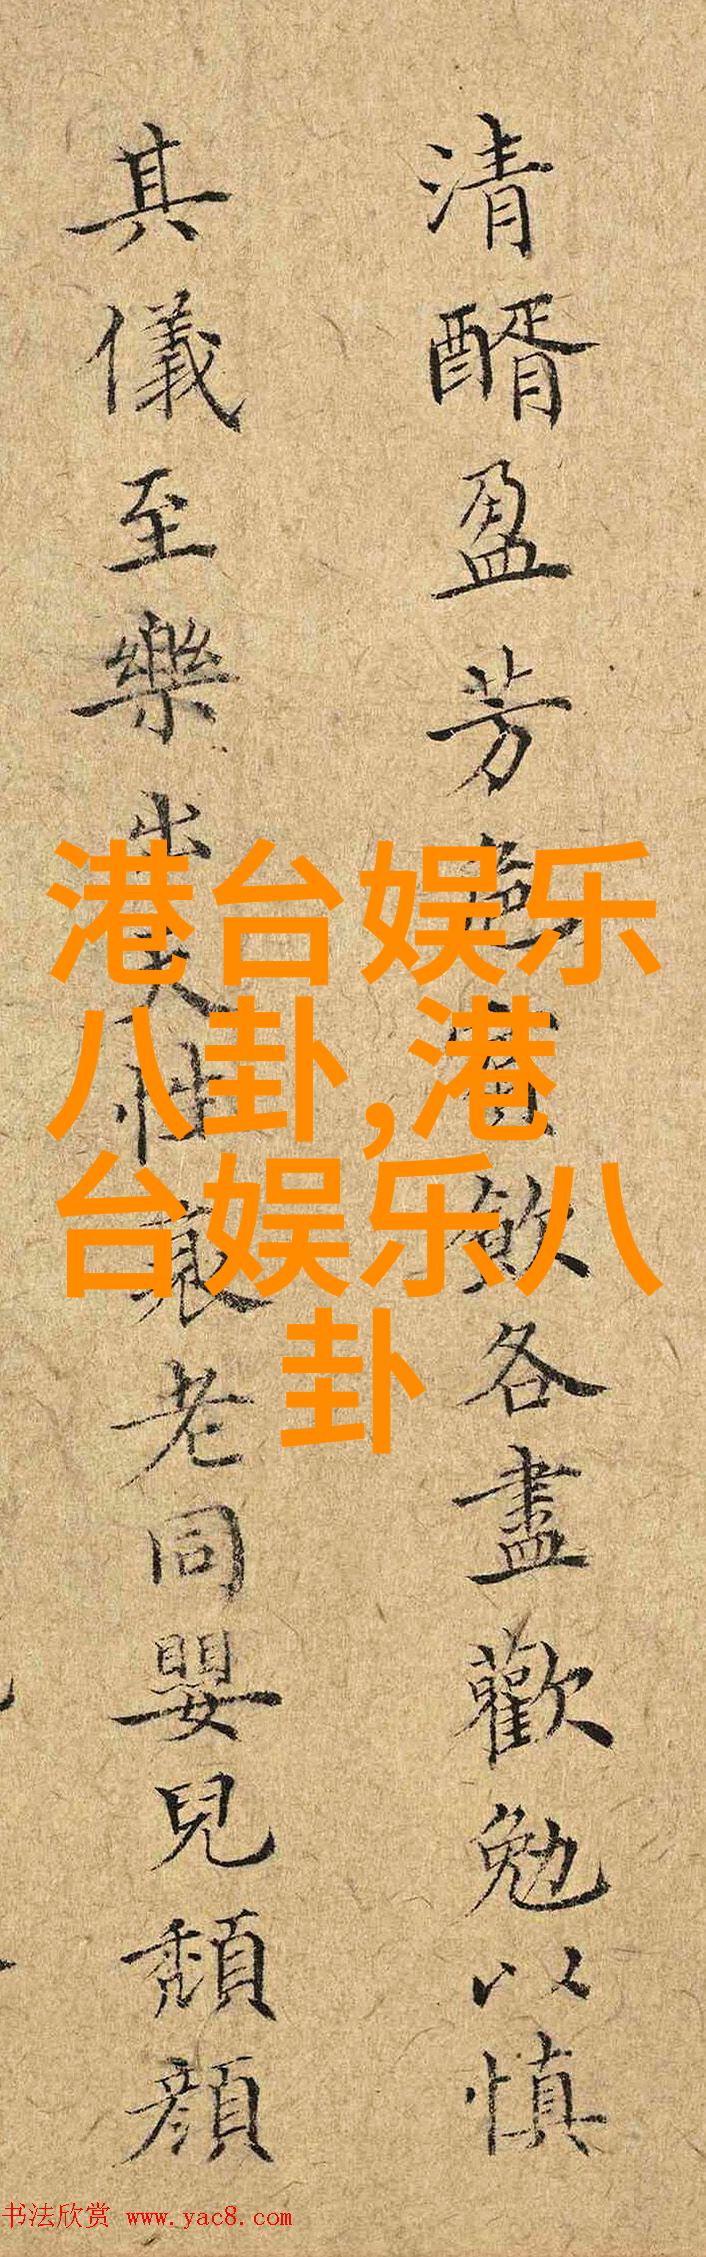 清醑盈芳
飲各盡歡勉以慎
其儀至樂出天性衰老同嬰兒頹顏
港台娱乐
八卦,港
台娱乐八
卦
书法欣赏 www.yac8.com